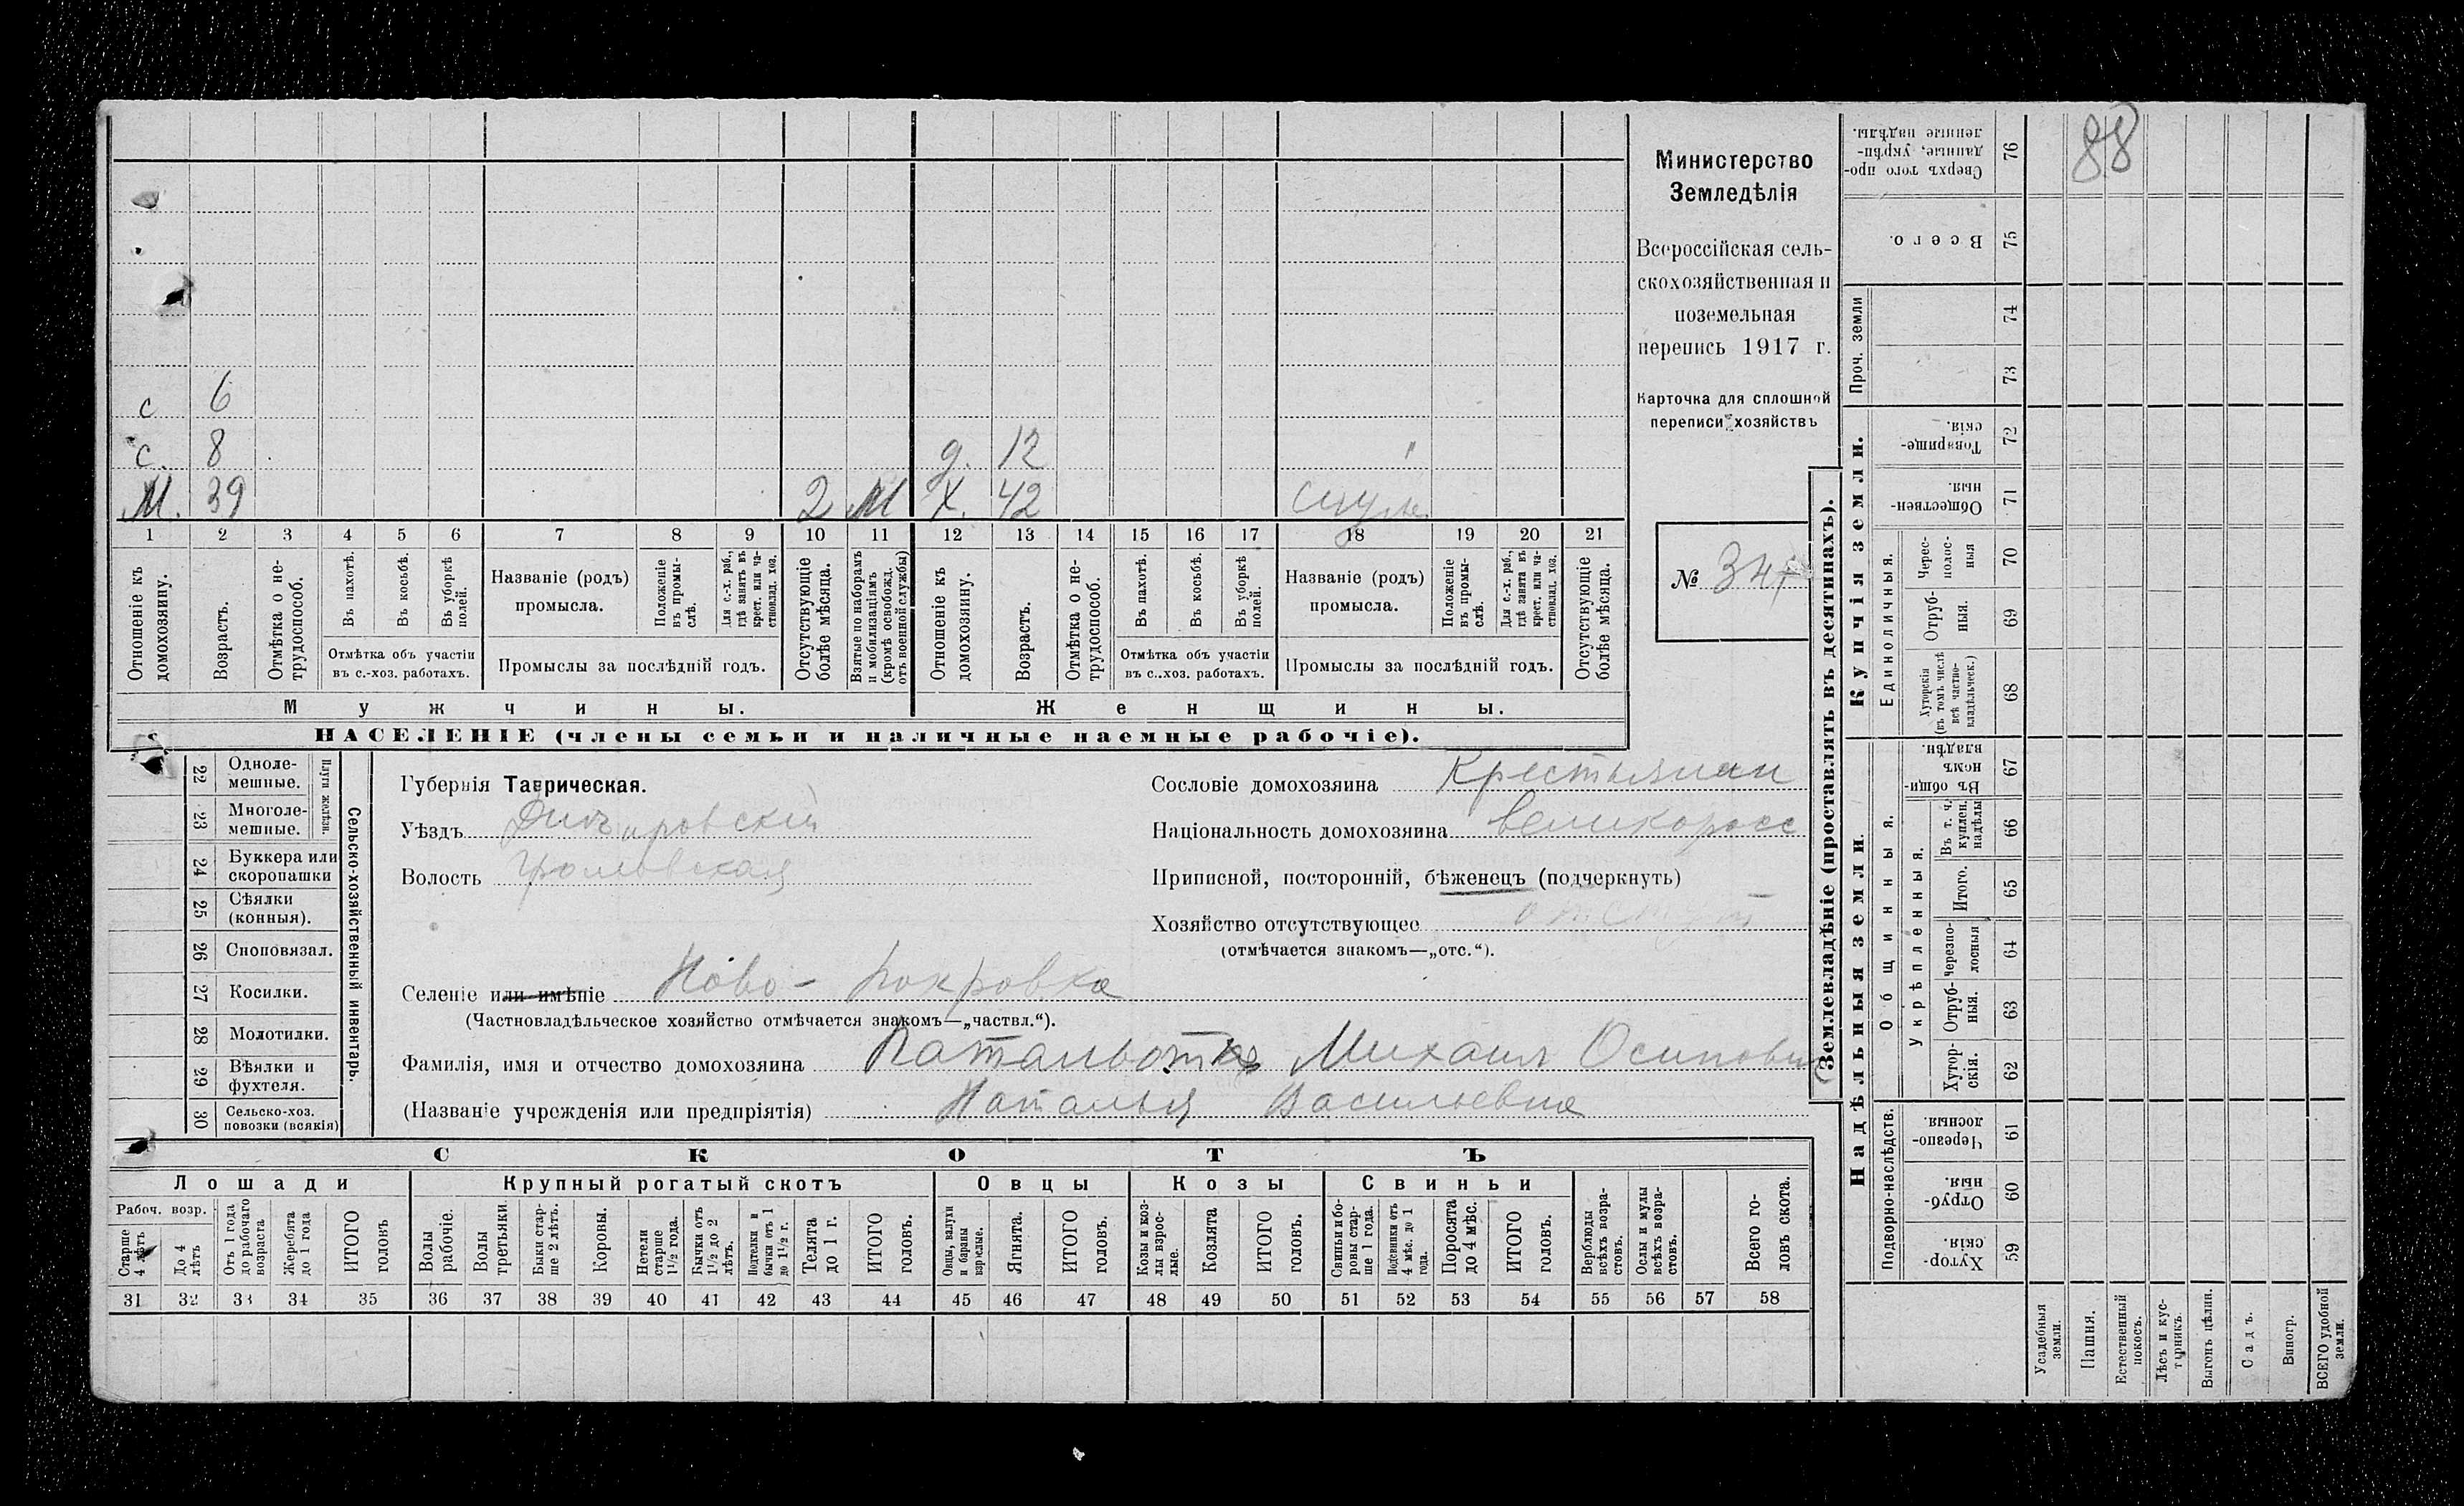 88
с 6
с. 8 д. 12
М. 39 2 М Х. 42
1 2 3 4 5 6 7 8 9 10 11 12 13 14 15 16 17 18 19 20 21
Отношеніе къ домохозяину.
Возрастъ.
Отмѣтка о не-трудоспособ.
Въ пахотѣ.
Въ косьбѣ.
Въ уборкѣ полей.
Отмѣтка объ участіи
въ с.-хоз. работахъ.
Названіе (родъ)
промысла.
Положеніе въ промы-слѣ.
Для с.-х. раб., гдѣ занятъ въ крест. или ча-стновлад. хоз.
Промыслы за послѣдній годъ.
Отсутствующіе болѣе мѣсяца.
Взятые по наборамъ и мобилизаціямъ (кромѣ освобожд. отъ военной службы)
Отношеніе къ домохозяину.
Возрастъ.
Отмѣтка о не-трудоспособ.
Въ пахотѣ.
Въ косьбѣ.
Въ уборкѣ полей.
Отмѣтка объ участіи
въ с.-хоз. работахъ.
Названіе (родъ)
промысла.
Положеніе въ промы-слѣ.
Для с.-х. раб., гдѣ занята въ крест. или ча-стновлад. хоз.
Промыслы за послѣдній годъ.
Отсутствующіе болѣе мѣсяца.
Мужчины. Женщины.
НАСЕЛЕНІЕ (члены семьи и наличные наемные рабочіе).
Министерство
Земледѣлія
Всероссійская сель-
скохозяйственная и
поземельная
перепись 1917 г.
Карточка для сплошной
переписи хозяйствъ
№
Сельско-хозяйственный инвентарь.
Плуги желѣзн.
22 Одноле-мешные.
23 Многоле-мешные.
24 Буккера или скоропашки
25 Сѣялки (конныя).
26 Сноповязал.
27 Косилки.
28 Молотилки.
29 Вѣялки и фухтеля.
30 Сельско-хоз. повозки (всякія)
Губернія Таврическая.
Уѣздъ Днѣпровскій
Волость
Сословіе домохозяина Крестьянин
Національность домохозяина великоросс
Приписной, посторонній, бѣженецъ (подчеркнуть)
Хозяйство отсутствующее
(отмѣчается знакомъ—„отс.“).
Селеніе или имѣніе Ново-Покровка
(Частновладѣльческое хозяйство отмѣчается знакомъ—„частвл.“).
Фамилія, имя и отчество домохозяина Михаил Осипович
(Названіе учрежденія или предпріятія) Наталья Васильевна
СКОТЪ
Лошади Крупный рогатый скотъ Овцы Козы Свиньи
Рабоч. возр.
Старше 4 лѣтъ
До 4 лѣтъ
Отъ 1 года до рабочаго возраста
Жеребята до 1 года
ИТОГО головъ
Волы рабочіе.
Волы третьяки.
Быки стар-ше 2 лѣтъ.
Коровы.
Нетели старше 1½ года.
Бычки отъ 1½ до 2 лѣтъ.
Подтелки и бычки отъ 1 до 1½ г.
Телята до 1 г.
ИТОГО головъ.
Овцы, валухи и бараны взрослые.
Ягнята.
ИТОГО головъ.
Козы и коз-лы взрос-лые.
Козлята
ИТОГО головъ.
Свиньи и бо-ровы стар-ше 1 года.
Подсвинки отъ 4 мѣс. до 1 года.
Поросята до 4 мѣс.
ИТОГО головъ.
Верблюды всѣхъ возра-стовъ.
Ослы и мулы всѣхъ возра-стовъ.
Всего го-ловъ скота.
31 32 33 34 35 36 37 38 39 40 41 42 43 44 45 46 47 48 49 50 51 52 53 54 55 56 57 58
(Землевладѣніе (проставлять въ десятинахъ).
Купчія земли.
Надѣльныя земли.
Сверхъ того про-данные, укрѣп-ленные надѣлы. 76
Всего. 75
Проч. земли 74 73
Товарище-скія. 72
Обществен-ныя. 71
Единоличныя.
Черес-полос-ныя 70
Отруб-ныя. 69
Хуторскія (въ томъ числѣ всѣ частно-владѣльческ.) 68
Общинныя.
Въ общи-номъ владѣн. 67
Укрѣпленныя.
Въ т. ч. куплен. надѣлы 66
Итого. 65
Черезпо-лосныя 64
Отруб-ныя. 63
Хутор-скія. 62
Подворно-наслѣдств.
Черезпо-лосныя 61
Отруб-ныя. 60
Хутор-скія. 59
Усадебныя земли.
Пашня.
Естественный покосъ.
Лѣсъ и кус-тарникъ.
Выгонъ цѣлин.
Садъ.
Виногр.
ВСЕГО удобной земли.